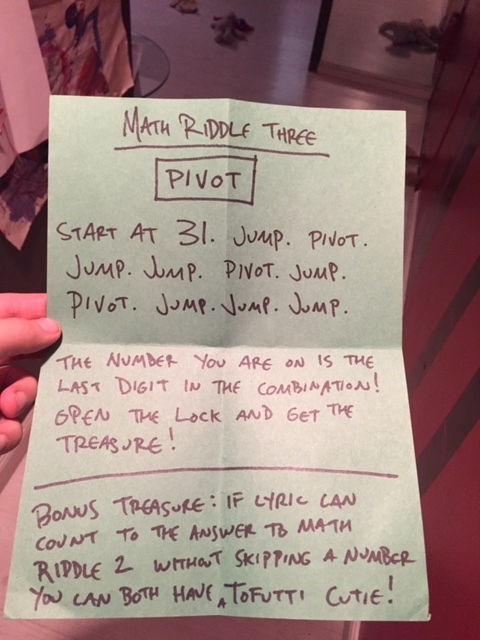 MATH RIDDLE THREE
PIVOT
START AT 31. JUMP. PIVOT.
JUMP. JUMP. PIVOT. JUMP.
PIVOT. JUMP. JUMP. JUMP.
THE NUMBER YOU ARE ON IS THE
LAST DIGIT IN THE COMBINATION!
OPEN THE LOCK AND GET THE
TREASURE!
BONUS TREASURE: IF LYRIC CAN
COUNT TO THE ANSWER TO MATH
RIDDLE 2 WITHOUT SKIPPING A NUMBER
YOU CAN BOTH HAVE A TOFUTTI CUTIE!